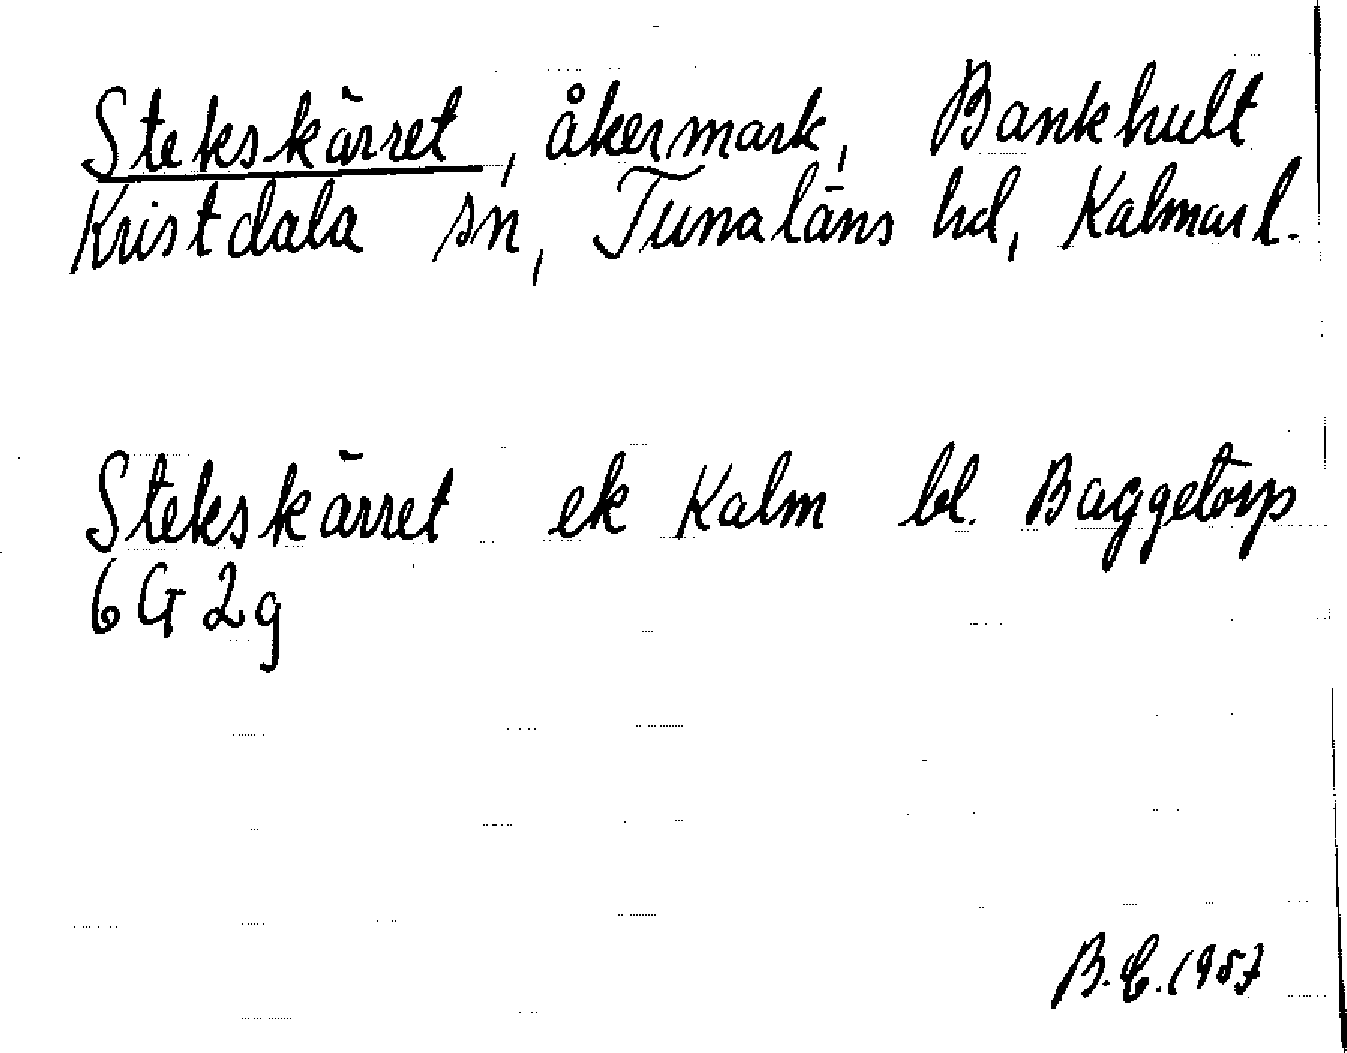 Stekskärret, åkermark, Bankhult
Kristdala sn, Tunaläns hd, Kalmar l.
Stekskärret ek Kalm bl. Baggetorp
6 G 2 g
B.E. 1957